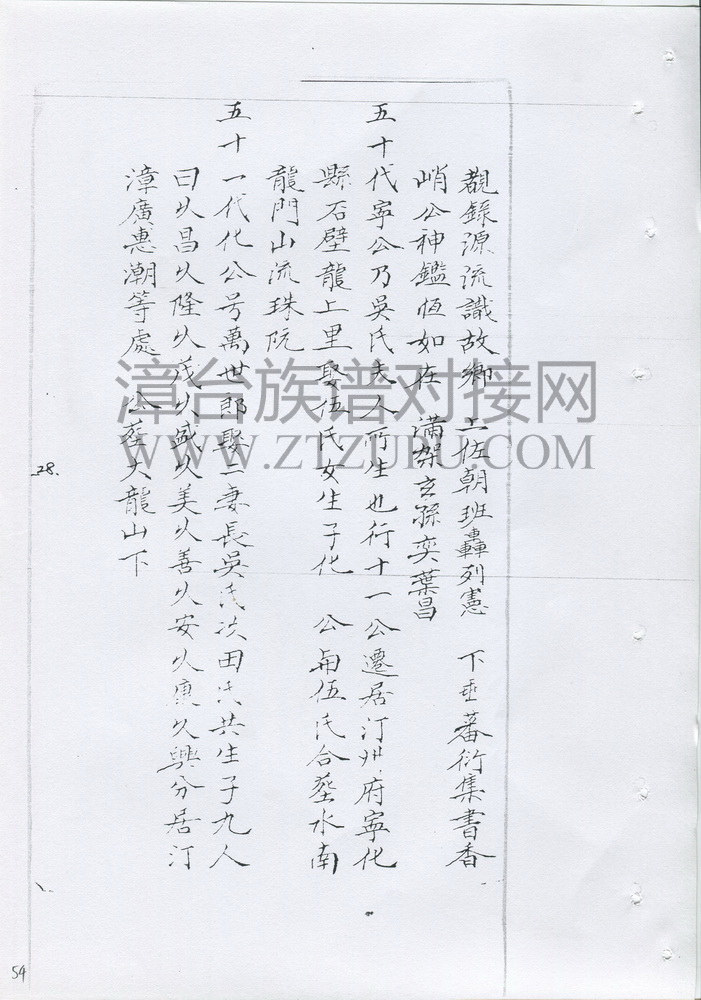 覩錄源流識故鄉 上佐朝班轟列憲 下垂蕃衍集書香
峭公神鑑恆如在 滿架玄孫奕葉昌
五十代寧公乃吳氏夫人所生也行十一公遷居汀州府寧化
縣石壁龍上里娶伍氏女生子化 公甫伍氏合塟水南
龍門山流珠阬
五十一代化公号萬世郎娶二妻長吳氏次田氏共生子九人
曰久昌久隆久茂久盛久美久善久安久康久興分居汀
漳廣惠潮等處 公塟大龍山下
28.
54
漳台族谱对接网
WWW.ZTZUPU.COM